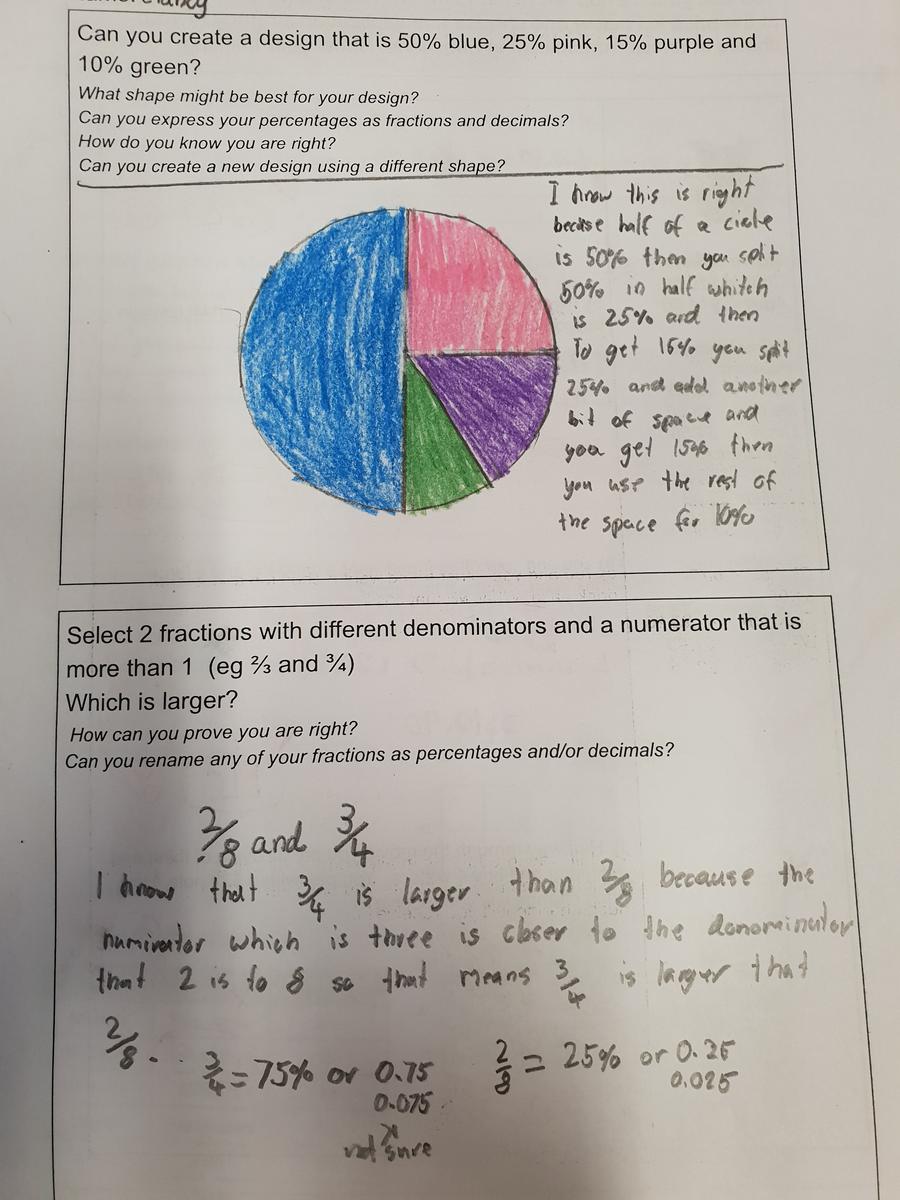 Can you create a design that is 50% blue, 25% pink, 15% purple and
10% green?
What shape might be best for your design?
Can you express your percentages as fractions and decimals?
How do you know you are right?
Can you create a new design using a different shape?
I know this is right
becuse half of a cicle
is 50% then you split
50% in half whitch
is 25% and then
To get 15% you split
25% and add another
bit of space and
you get 15% then
you use the rest of
the space for 10%
Select 2 fractions with different denominators and a numerator that is
more than 1 (eg ⅔ and ¾)
Which is larger?
How can you prove you are right?
Can you rename any of your fractions as percentages and/or decimals?
2/8 and 3/4
I know that 3/4 is larger than 2/8 because the
numirator which is three is closer to the denominator
that 2 is to 8 so that means 3/4 is larger that
2/8.
3/4 = 75% or 0.75
0.075
not sure
2/8 = 25% or 0.25
0.025